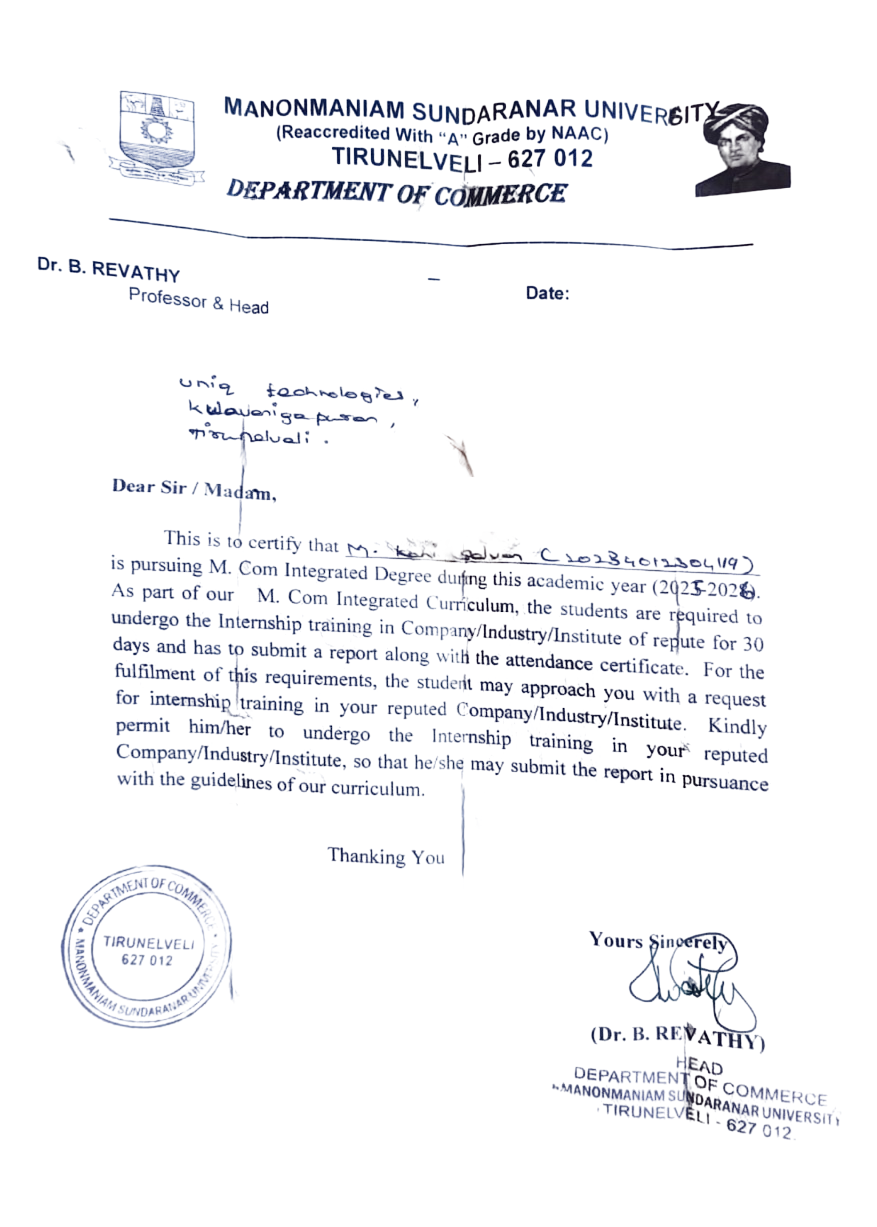 MANONMANIAM SUNDARANAR UNIVERSITY
(Reaccredited With "A" Grade by NAAC)
TIRUNELVELI – 627 012
DEPARTMENT OF COMMERCE
Dr. B. REVATHY
Professor & Head
–
Date:
uniq technologies,
tirunelveli.
Dear Sir / Madam,
This is to certify that M. selvan (20234012304119)
is pursuing M. Com Integrated Degree during this academic year (2025-2026).
As part of our M. Com Integrated Curriculum, the students are required to
undergo the Internship training in Company/Industry/Institute of repute for 30
days and has to submit a report along with the attendance certificate. For the
fulfilment of this requirements, the student may approach you with a request
for internship training in your reputed Company/Industry/Institute. Kindly
permit him/her to undergo the Internship training in your reputed
Company/Industry/Institute, so that he/she may submit the report in pursuance
with the guidelines of our curriculum.
Thanking You
DEPARTMENT OF COMMERCE
TIRUNELVELI
627 012
MANONMANIAM SUNDARANAR UNIVERSITY
Yours Sincerely
(Dr. B. REVATHY)
HEAD
DEPARTMENT OF COMMERCE
MANONMANIAM SUNDARANAR UNIVERSITY
TIRUNELVELI - 627 012.